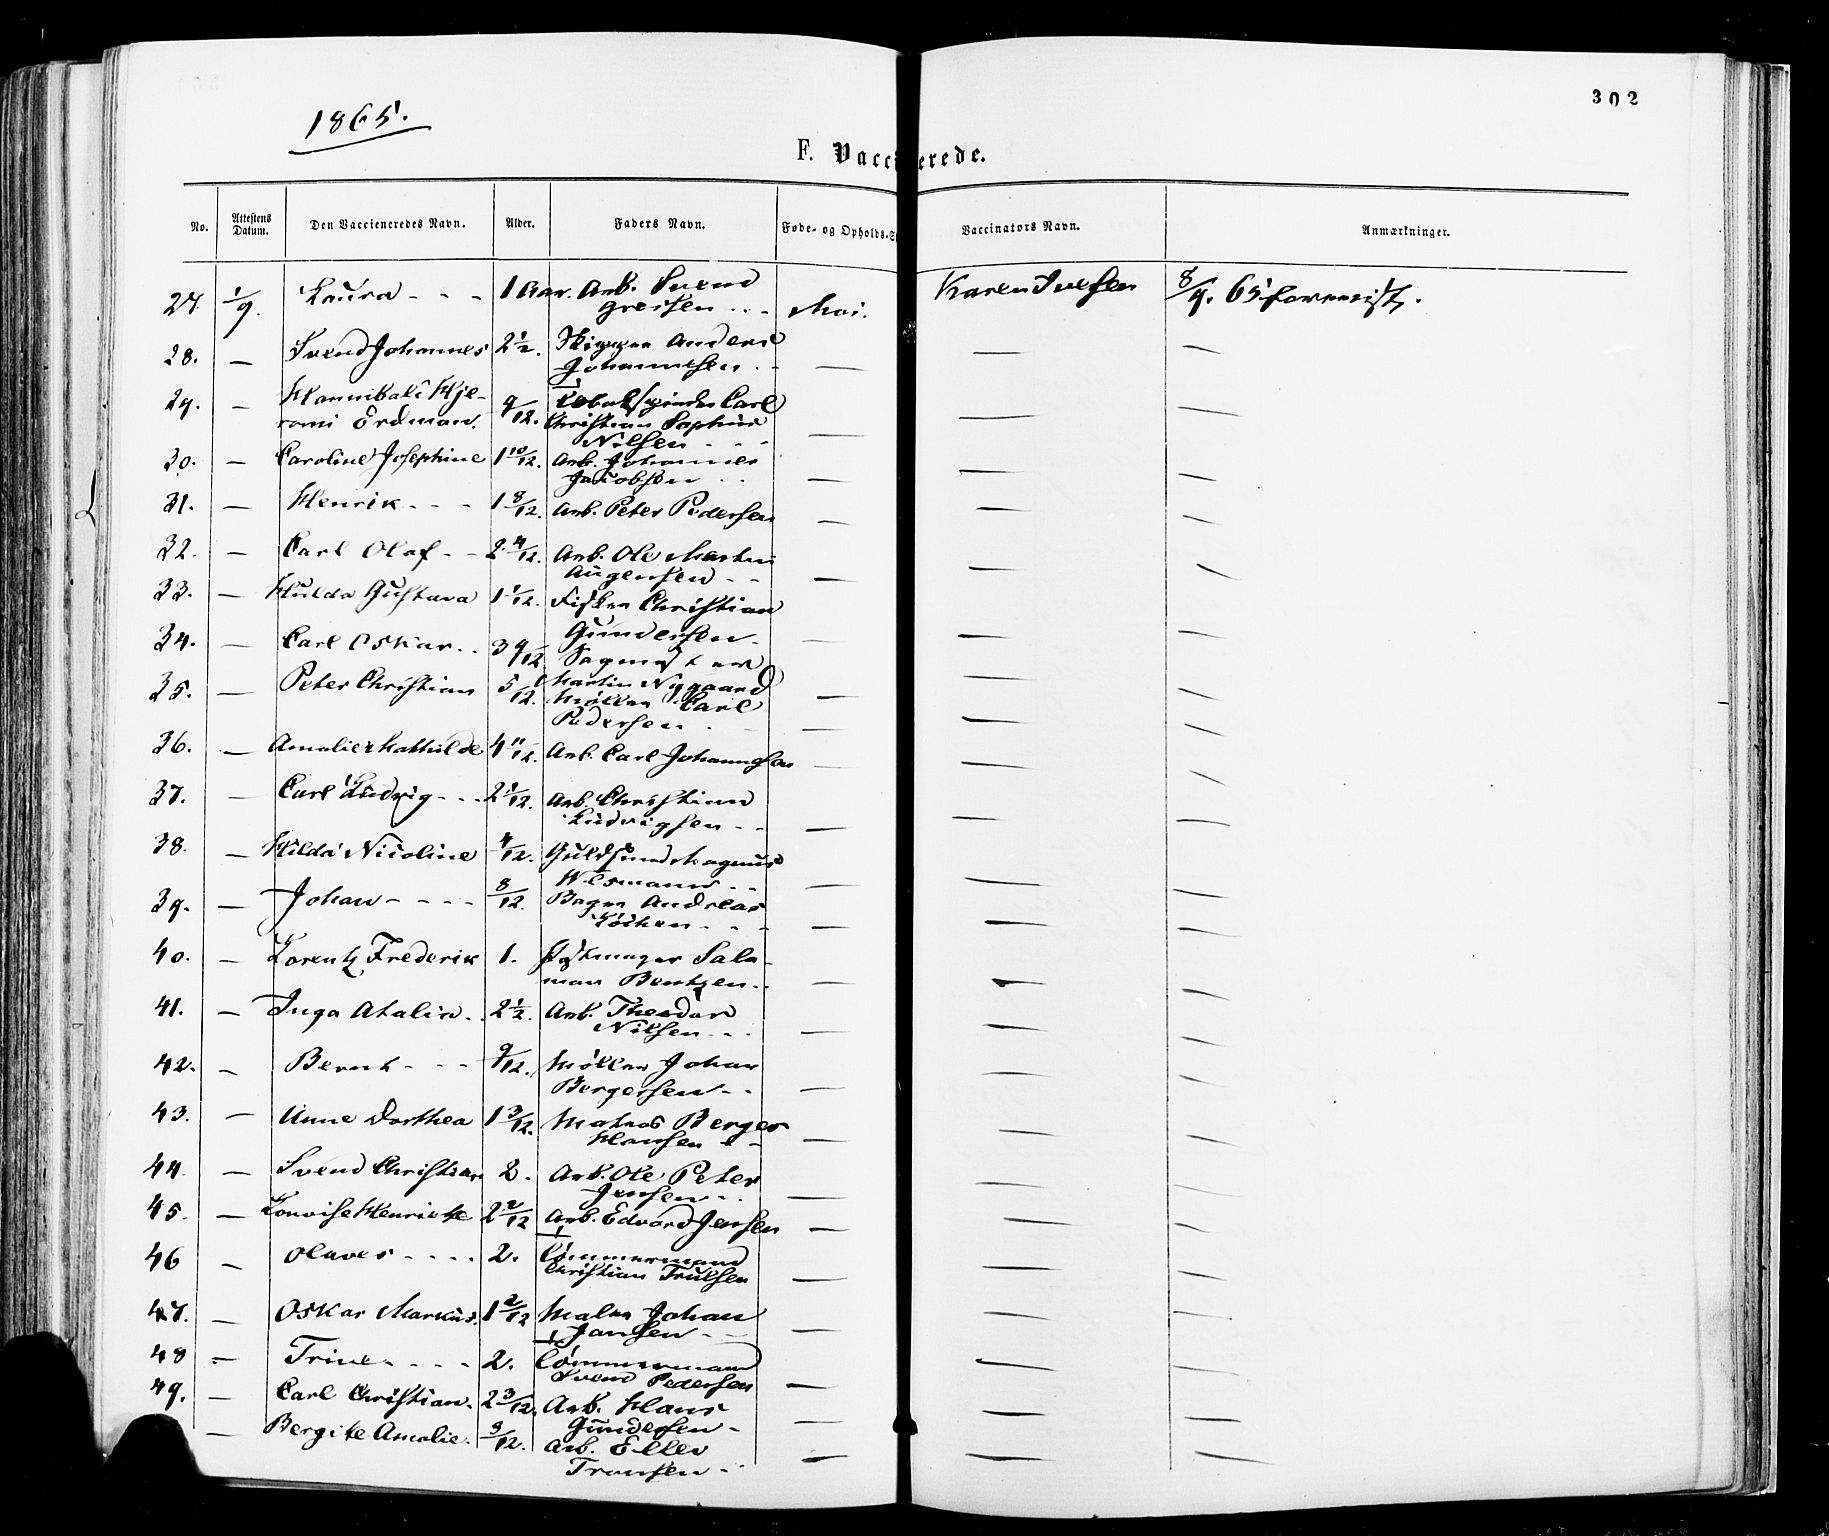 302
1865.
F. Vacci erede.
No. Attestens Datum. Den Vaccieneredes Navn. Alder. Faders Navn. Føde- og Opholds-S Vaccinators Navn. Anmærkninger.
27. 1/9. Laura - - - 1 Aar. Arb. Svend Karen Ivesen 8/9. 65 forevist.
Gresen . . - Moi.
28. — Svend Johannes 2 1/2. Skipper Anders — —
Johannesen . . —
29. — Hannibal Hje- 9/12. Carl — —
romi Erdman. Christian Sophus
Nilsen - - - —
30. — Caroline Josephine 1 10/12. Arb. Johannes — —
Jacobsen . . —
31. — Henrik - - - 1 8/12. Arb. Peter Pedersen — — —
32. — Carl Olaf - - 2 4/12. Arb. Ole Martin — —
Augensen - - —
33. — Hulda Gustava 1 1/12. Fisker Christian
Gundersen - — — —
34. — Carl Oskar . . 3 9/12 Sagmester
Martin Nygaard — — —
35. — Peter Christian 5/12. Møller Carl
Pedersen . - — — —
36. — Amalie Mathilde 4 11/12. Arb. Carl Johannesen — — —
37. — Carl Ludvig - - - 2 1/12. Arb. Christian
Ludvigsen - - — — —
38. — Hilda Nicoline 4/12. Guldsmed Magnus
Wesmann - - — — —
39. — Johan - - - - 8/12. Bager Andreas
Cochen - - - — — —
40. — Lorentz Frederik 1. Salo-
mon Bentzen - - — — —
41. — Inga Atalia . . 2 1/2. Arb. Theodor
Nilsen - - - — — —
42. — Bernt - - - 9/12. Møller Johan
Bergersen - - — — —
43. — Anne Dorthea 1 3/12. Matros Berger
Hansen - - — — —
44. — Svend Christian 2. Arb. Ole Peter
Jensen - . — — —
45. — Lovise Henricke 2 2/12 Arb. Edvard Jensen — — —
46 — Olaves - - - - 2. Tømmermand
Christian Trulsen — — —
47. — Oskar Markus. 1 2/12 Maler Johan
Jansen - - — — —
48 — Trine - - - - 2. Tømmermand
Svend Pedersen — — —
49. — Carl Christian. 2 3/12. Arb. Hans
Gundersen - — — —
— Bergite Amalie. 3/12. Arb. Ellev
Tronsen - . — — —